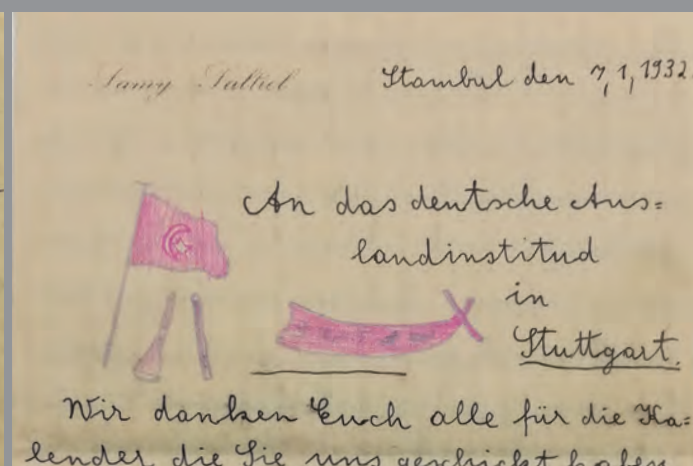 Samy Saltiel
Stambul den 7,1,1932.
An das deutsche Aus=
landinstitud
in
Stuttgart.
Wir danken Euch alle für die Ka=
lender die Sie uns geschickt haben